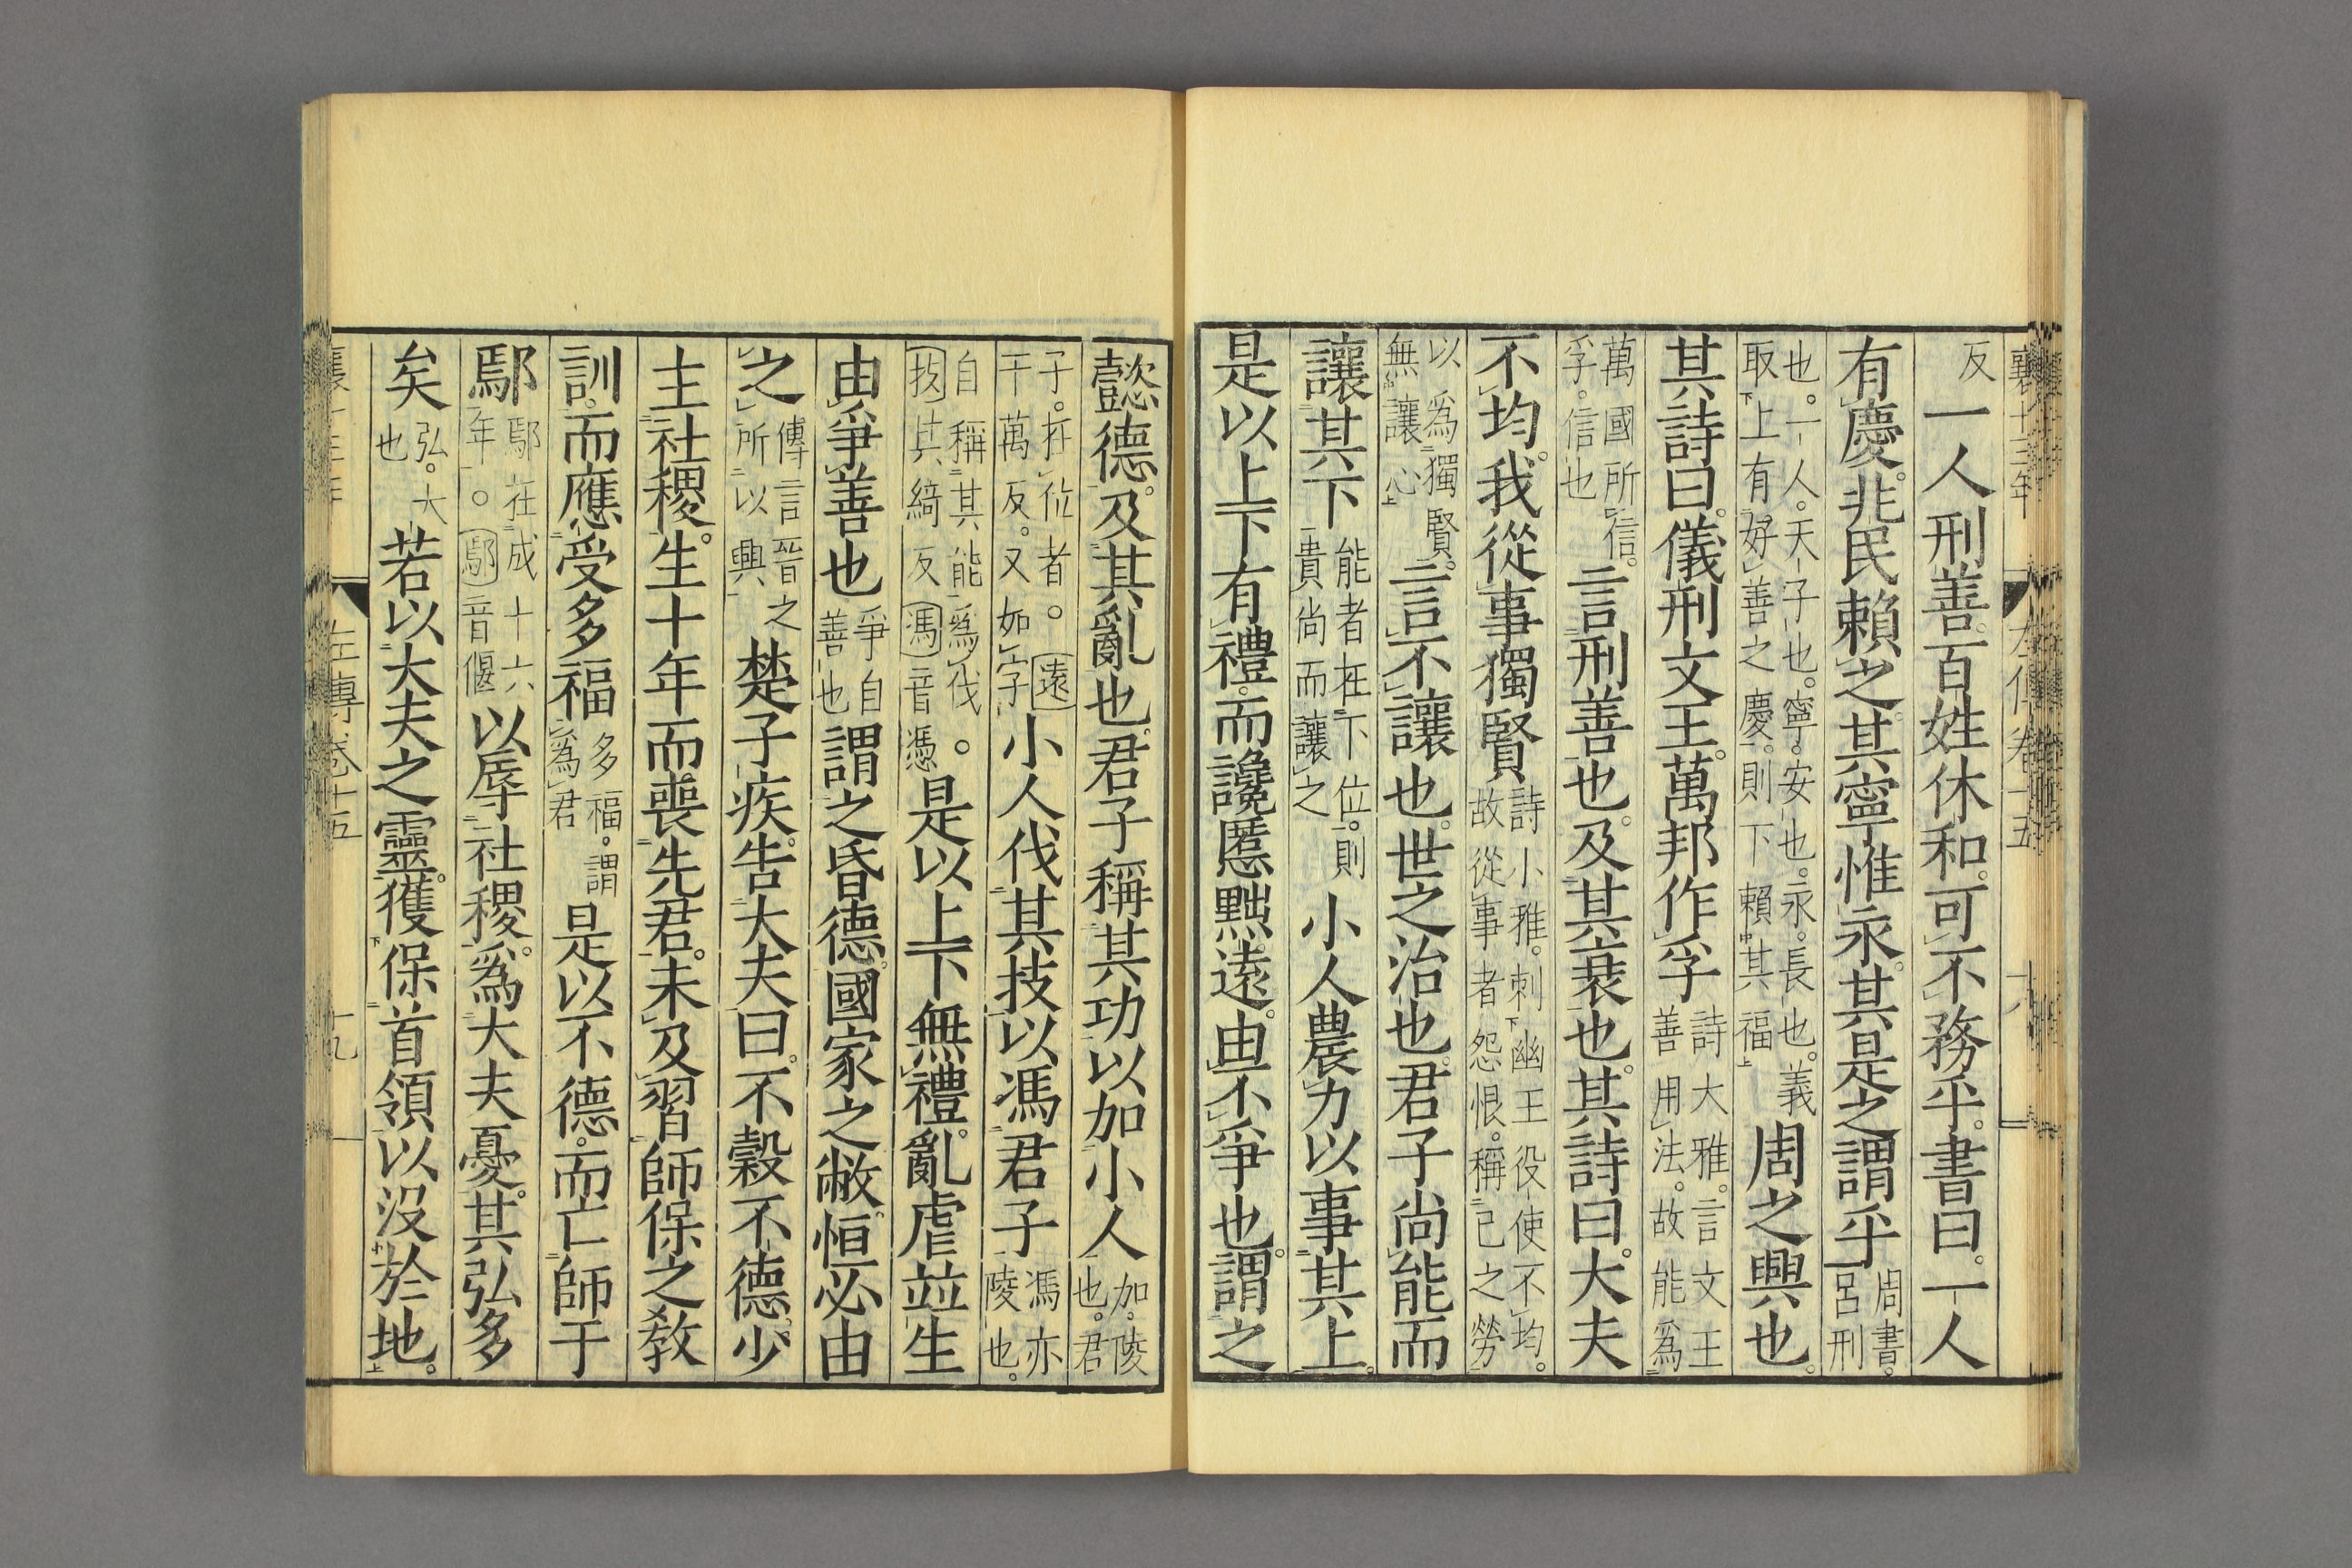 襄十三年 左傳卷十五 十八
反 一人刑善。百姓休和。可不務乎。書曰。一人
有慶。兆民賴之。其寧惟永。其是之謂乎 周書。呂刑
也。一人。天子也。寧。安也。永。長也。義取上有好善之慶。則下賴其福 周之興也。
其詩曰。儀刑文王。萬邦作孚 詩大雅。言文王善用法。故能爲
萬國所信。孚。信也 言刑善也。及其衰也。其詩曰。大夫
不均。我從事獨賢 詩小雅。刺幽王役使不均。故從事者怨恨。稱己之勞
以爲獨賢。無讓心 言不讓也。世之治也。君子尚能而
讓其下 能者在下位。則貴尚而讓之 小人農力以事其上。
是以上下有禮。而讒慝黜遠。由不爭也。謂之
懿德。及其亂也。君子稱其功以加小人 加。陵也。君
子。在位者。遠于萬反。又如字 小人伐其技以馮君子 馮亦陵也。
自稱其能爲伐。技其綺反 馮音憑 是以上下無禮。亂虐並生
由爭善也 爭自善也 謂之昏德。國家之敝。恒必由
之 傳言晉之所以興 楚子疾。告大夫曰。不穀不德。少
主社稷。生十年而喪先君。未及習師保之教
訓。而應受多福 多福。謂爲君 是以不德。而亡師于
鄢 鄢在成十六年。鄢音偃 以辱社稷。爲大夫憂。其弘多
矣 弘。大也 若以大夫之靈。獲保首領以沒於地。
襄十三年 左傳卷十五 十九